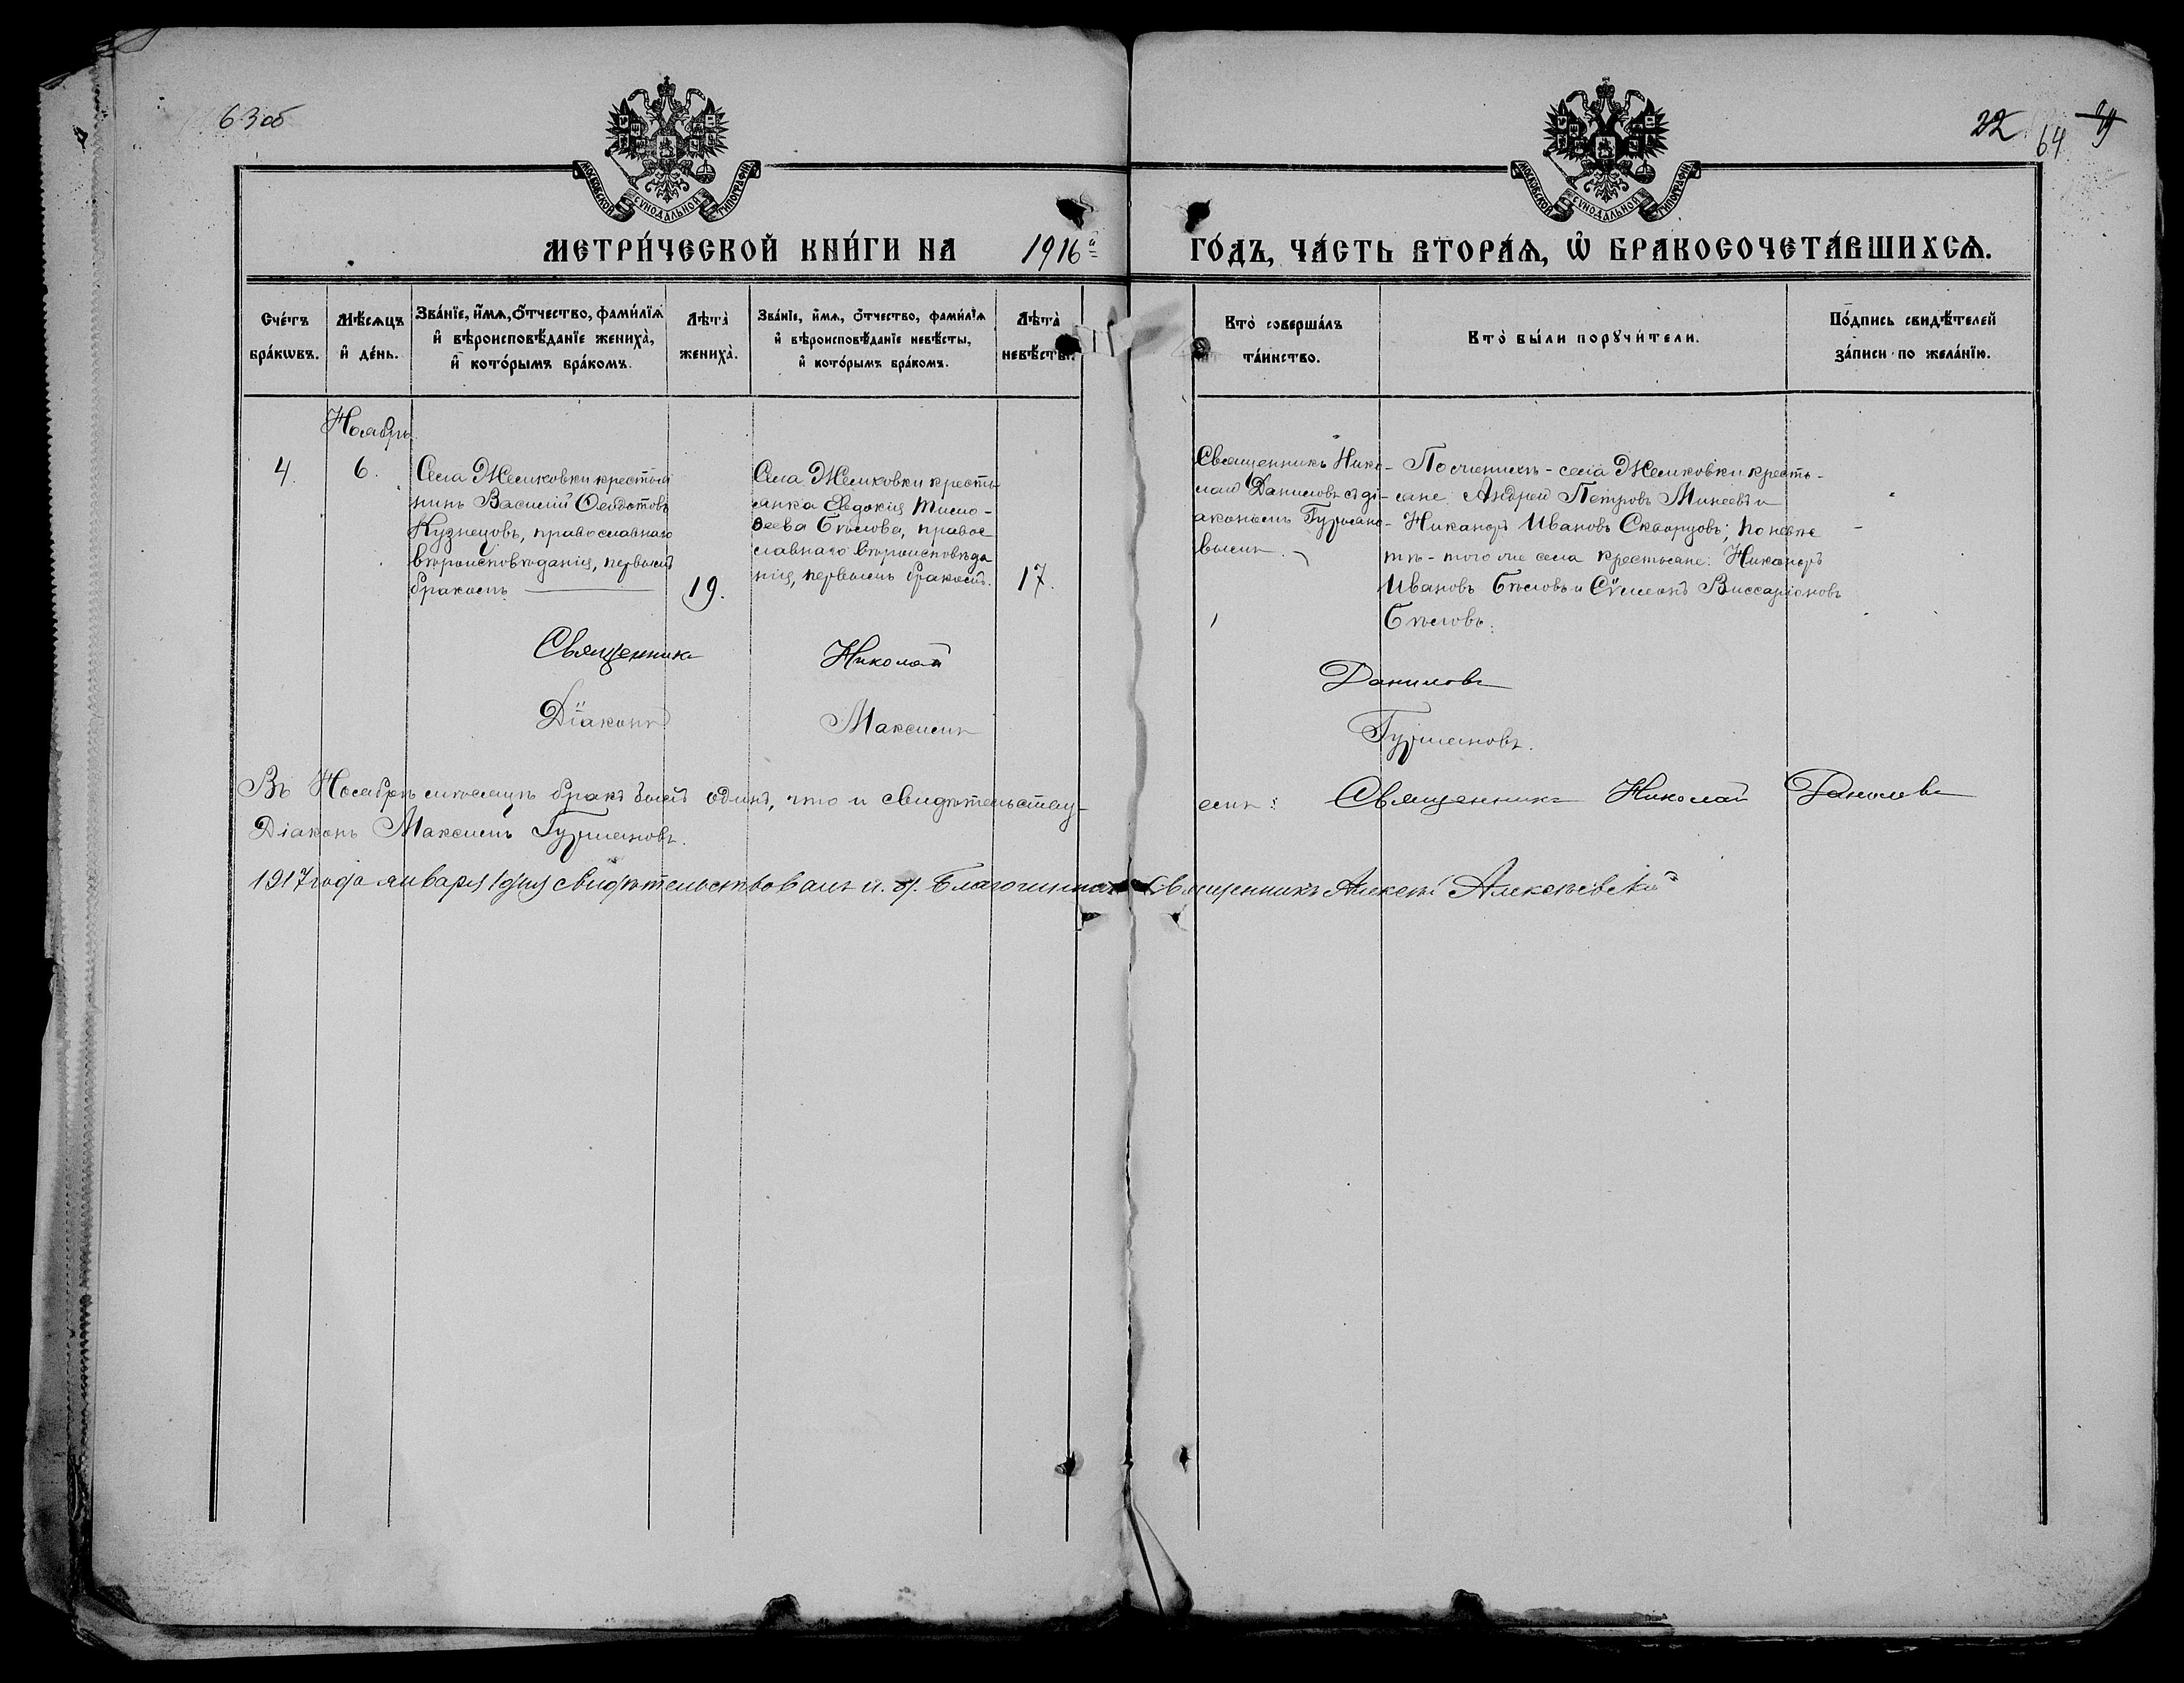 63об
22 64
МОСКОВСКОЙ СУНОДАЛЬНОЙ ТИПОГРАФІИ
МОСКОВСКОЙ СУНОДАЛЬНОЙ ТИПОГРАФІИ
МЕТРИ́ЧЕСКОЙ КНИ́ГИ НА 1916й ГО́ДЪ, ЧА́СТЬ ВТОРА́Ѧ, Ѡ҆ БРАКОСОЧЕТА́ВШИХСѦ.
Сче́тъ бра́кѡвъ.
Мѣ́сѧцъ и҆ де́нь.
Зва́нїе, и҆́мѧ, ѻ҆́тчество, фами́лїѧ и҆ вѣроисповѣ́данїе жениха̀, и҆ кото́рымъ бра́комъ.
Лѣта̀ жениха̀.
Зва́нїе, и҆́мѧ, ѻ҆́тчество, фами́лїѧ и҆ вѣроисповѣ́данїе невѣ́сты, и҆ кото́рымъ бра́комъ.
Лѣта̀ невѣ́сты.
Кто̀ соверша́лъ та́инство.
Кто̀ бы́ли порꙋчи́тели.
По́дпись свидѣ́телей за́писи по жела́нїю.
Ноябрь
4.
6.
Села Жемковки крестья
нинъ Василій Ѳеодотовъ
Кузнецовъ, православнаго
вѣроисповѣданія, первымъ
бракомъ
19.
Села Жемковки кресть
янка Евдокія Тимо-
ѳеева Бѣлова, право
славнаго вѣроисповѣда
нія, первымъ бракомъ.
17.
Священникъ Нико-
лай Даниловъ съ ді-
акономъ Гурьяно-
вымъ.
По женихѣ - села Жемковки кресть-
яне Андрей Петровъ Минеевъ и
Никаноръ Ивановъ Скворцовъ; по невѣс
тѣ - того же села крестьяне: Никаноръ
Ивановъ Бѣловъ и Сѵмеонъ Виссаріоновъ
Бѣловъ.
Священникъ Николай Даниловъ
Діаконъ Максимъ Гурьяновъ.
Въ Ноябрѣ мѣсяцѣ бракъ былъ одинъ, что и свидѣтельству-
емъ: Священникъ Николай Даниловъ
Діаконъ Максимъ Гурьяновъ.
1917 года января 1 дня свидѣтельствовалъ и. д. Благочиннаго Священникъ Алексѣй Алексѣевскій